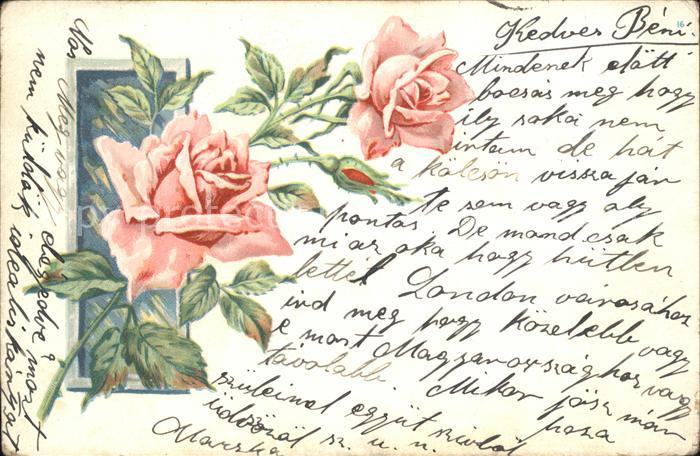 Kedves Béni.
Mindenek előtt
bocsás meg hogy
ily soká nem
írtam de hát
a kölcsön visszajár
te sem vagy oly
pontos. De mond csak
mi az oka hogy hűtlen
lettél London városához
ird meg hogy közelebb vagy
e most Magyarországhoz vagy
távolabb. Mikor jösz már
haza
szüleinel együt szivből
üdvözöl sz. u. n.
Mariska
Meg vagy elégedve most
nem küldök